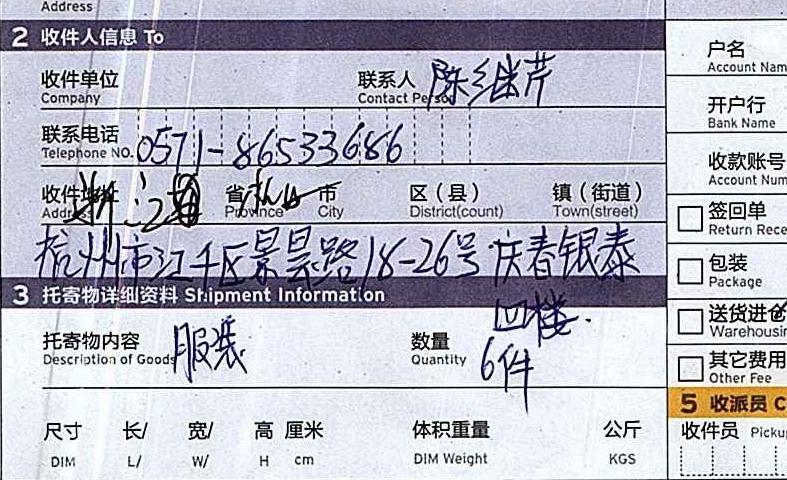 Address
2 收件人信息 To
收件单位 联系人 陈继芹
Company Contact Person
联系电话 0571-86533686
Telephone NO.
收件地址 浙江 省 杭州 市 区（县） 镇（街道）
Address Province City District(count) Town(street)
杭州市江干区景昙路18-26号 庆春银泰
四楼.
3 托寄物详细资料 Shipment Information
托寄物内容 服装 数量 6件
Description of Goods Quantity
尺寸 长/ 宽/ 高 厘米 体积重量 公斤
DIM L/ W/ H cm DIM Weight KGS
户名
Account Nam
开户行
Bank Name
收款账号
Account Num
签回单
Return Rece
包装
Package
送货进仓
Warehousin
其它费用
Other Fee
5 收派员 C
收件员 Picku